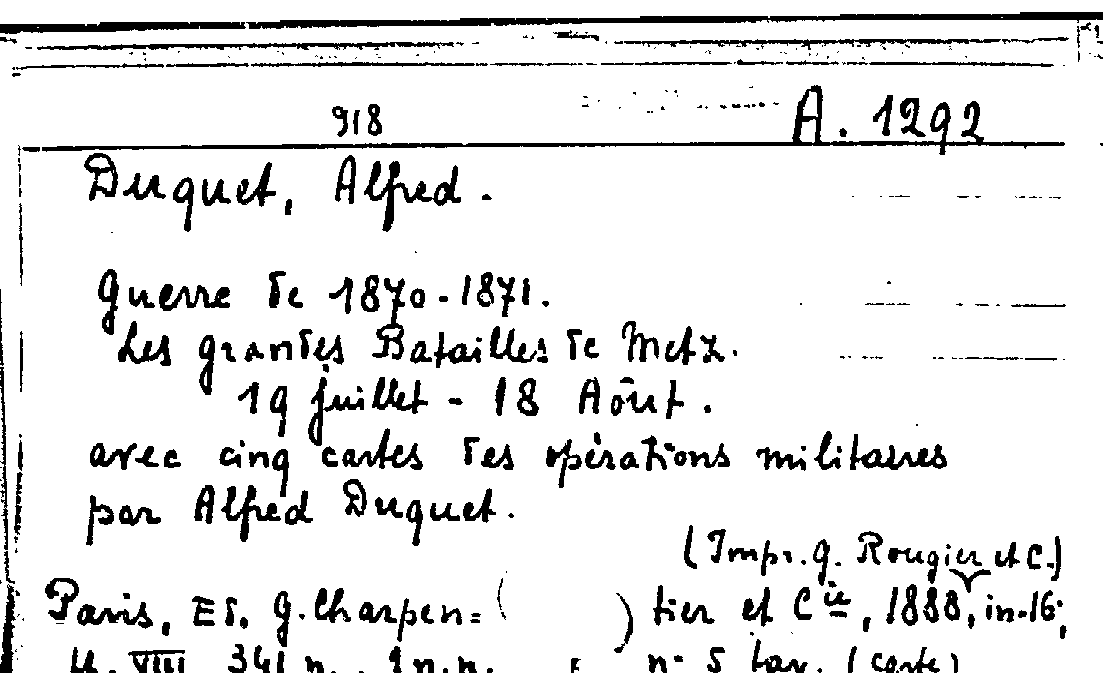 918 A. 1292
Duquet, Alfred.
Guerre de 1870-1871.
Les grandes Batailles de Metz.
19 juillet - 18 Aôut.
avec cinq cartes des opérations militaires
par Alfred Duquet.
(Impr. G. Rougier et C.)
Paris, Ed. G. Charpen= ( ) tier et Cie, 1888, in-16;
VIII 341 p. 5 tav. (carte)